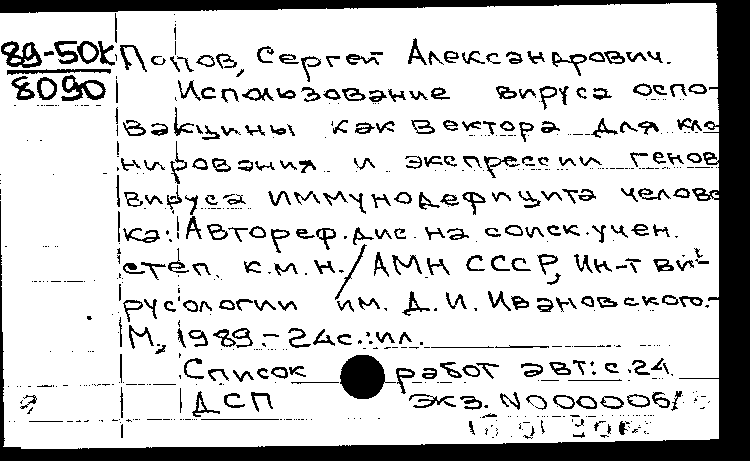 89-50К Попов, Сергей Александрович.
8090 Использование вируса оспо-
вакцины как вектора для кло
нирования и экспрессии генов
вируса иммунодефицита челове
ка: Автореф. дис. на соиск. учен.
степ. к.м.н. / АМН СССР, Ин-т ви-
русологии им. Д.И. Ивановского.-
М., 1989.- 24с.:ил.
Список работ авт: с.24
ДСП экз. N000006/